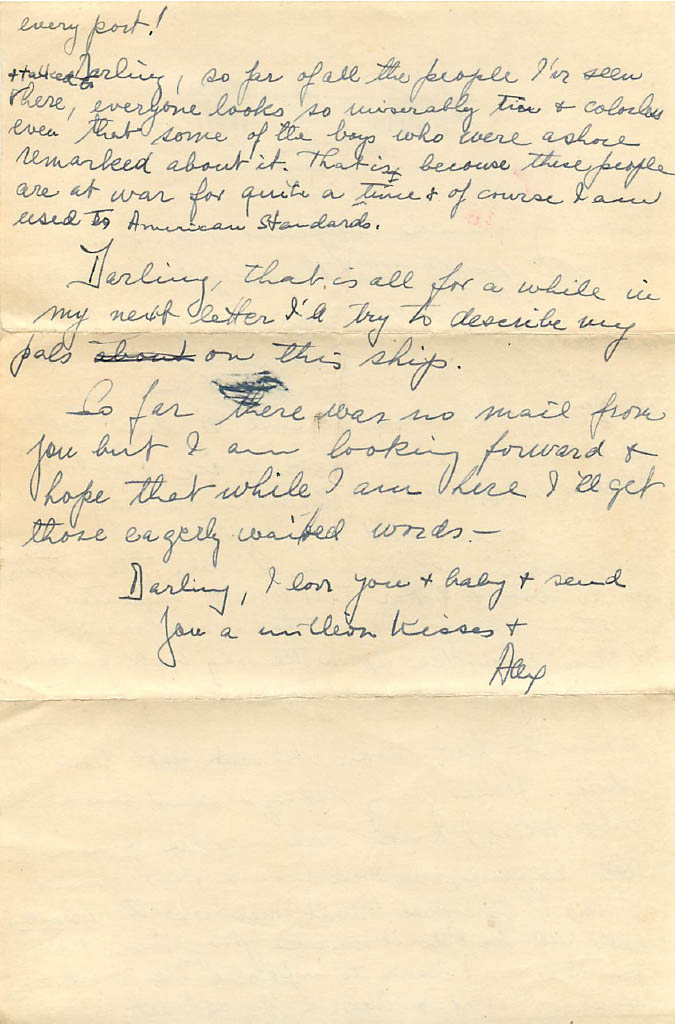 every port!
Darling, so far of all the people I've seen
+ talked to
here, everyone looks so miserably thin & colorless
even that some of the boys who were ashore
remarked about it. That is, because these people
are at war for quite a time & of course I am
used to American Standards.
Darling, that is all for a while in
my next letter I'll try to describe my
pals about on this ship.
So far there was no mail from
you but I am looking forward &
hope that while I am here I'll get
those eagerly waited words —
Darling, I love you + baby + send
you a million kisses +
Alex